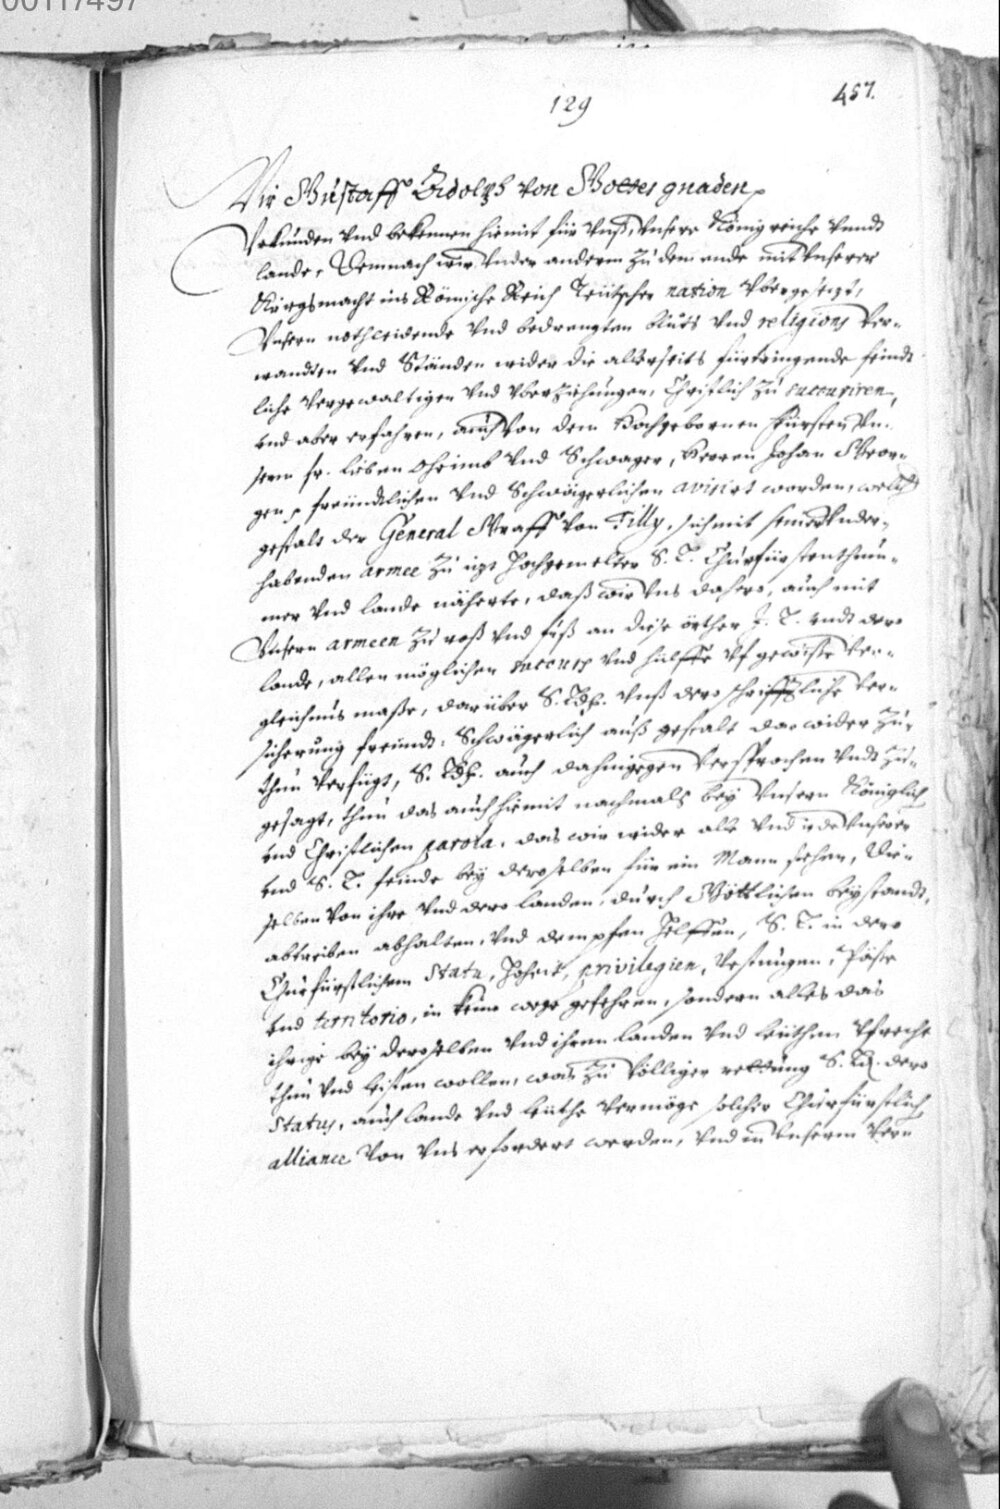 00117497
129
457.
Wir Gustaff Adolph von Gottes gnaden p
Vrkunden vnd bekennen hiemit für vnß, vnsere Königreiche vnndt
lande, Demnach wir vnder anderm zu dem ende mit vnserer
Kriegsmacht ins Römische Reich Teütscher nation vbergesezt,
Vnsern nothleidende vnd bedrengten bluts vnd religions ver-
wandten vnd Ständen wider die allerseits fürtringende feindt
liche vergewaltigen vnd vberziehungen, Christlich zu succuriren,
vnd aber erfahren, auch von dem Hochgebornen Fürsten, vn-
serm fr. lieben Oheimb vnd Schwager, Herren Johan Geor-
gen p freündtlichen vnd Schwägerlichen avisirt worden, welch
gestalt der General Graff von Tilly, sich mit seiner vnder-
habenden armee zu izt Hochgemelter S. L. Churfürstenthum-
mer vnd lande näherte, daß wir vns dahero, auch mit
Vnsern armeen zu roß vnd fuß an diese örther J. L. vndt dero
lande, allen möglichen succurs vnd hülffe vf gewisse ver-
gleichnus masse, darüber S. Ldh. vnß dero schrifftliche ver-
sicherung freündt: Schwägerlich auß gestalt darwider zu-
thun verfügt, S. Ldh. auch dahingegen versprochen vndt zu-
gesagt, thun das auch hiemit nachmals bey vnsern Königlich
vnd Christlichen parola, das wir wider alle vnd iede vnserer
vnd S. L. feinde bey deroselben für ein Mann stehen, Die-
selben von ihr vnd dero landen, durch Göttlichen beystandt,
abtreiben abhalten, vnd dempfen helffen, S. L. in dero
Churfürstlichem Statu, hoheit, privilegien, vestungen, Päße
vnd territorio, in keine wege gefehren, sondern alles das
ihrige bey deroselben vnd ihren landen vnd leüthen vfrecht
thun vnd leisten wollen, was zu völliger rettung S. Ld. dero
Status, auch lande vnd leüthe vermöge solcher Churfürstlich
alliance von vns erfordert werden, vnd in vnserm ver